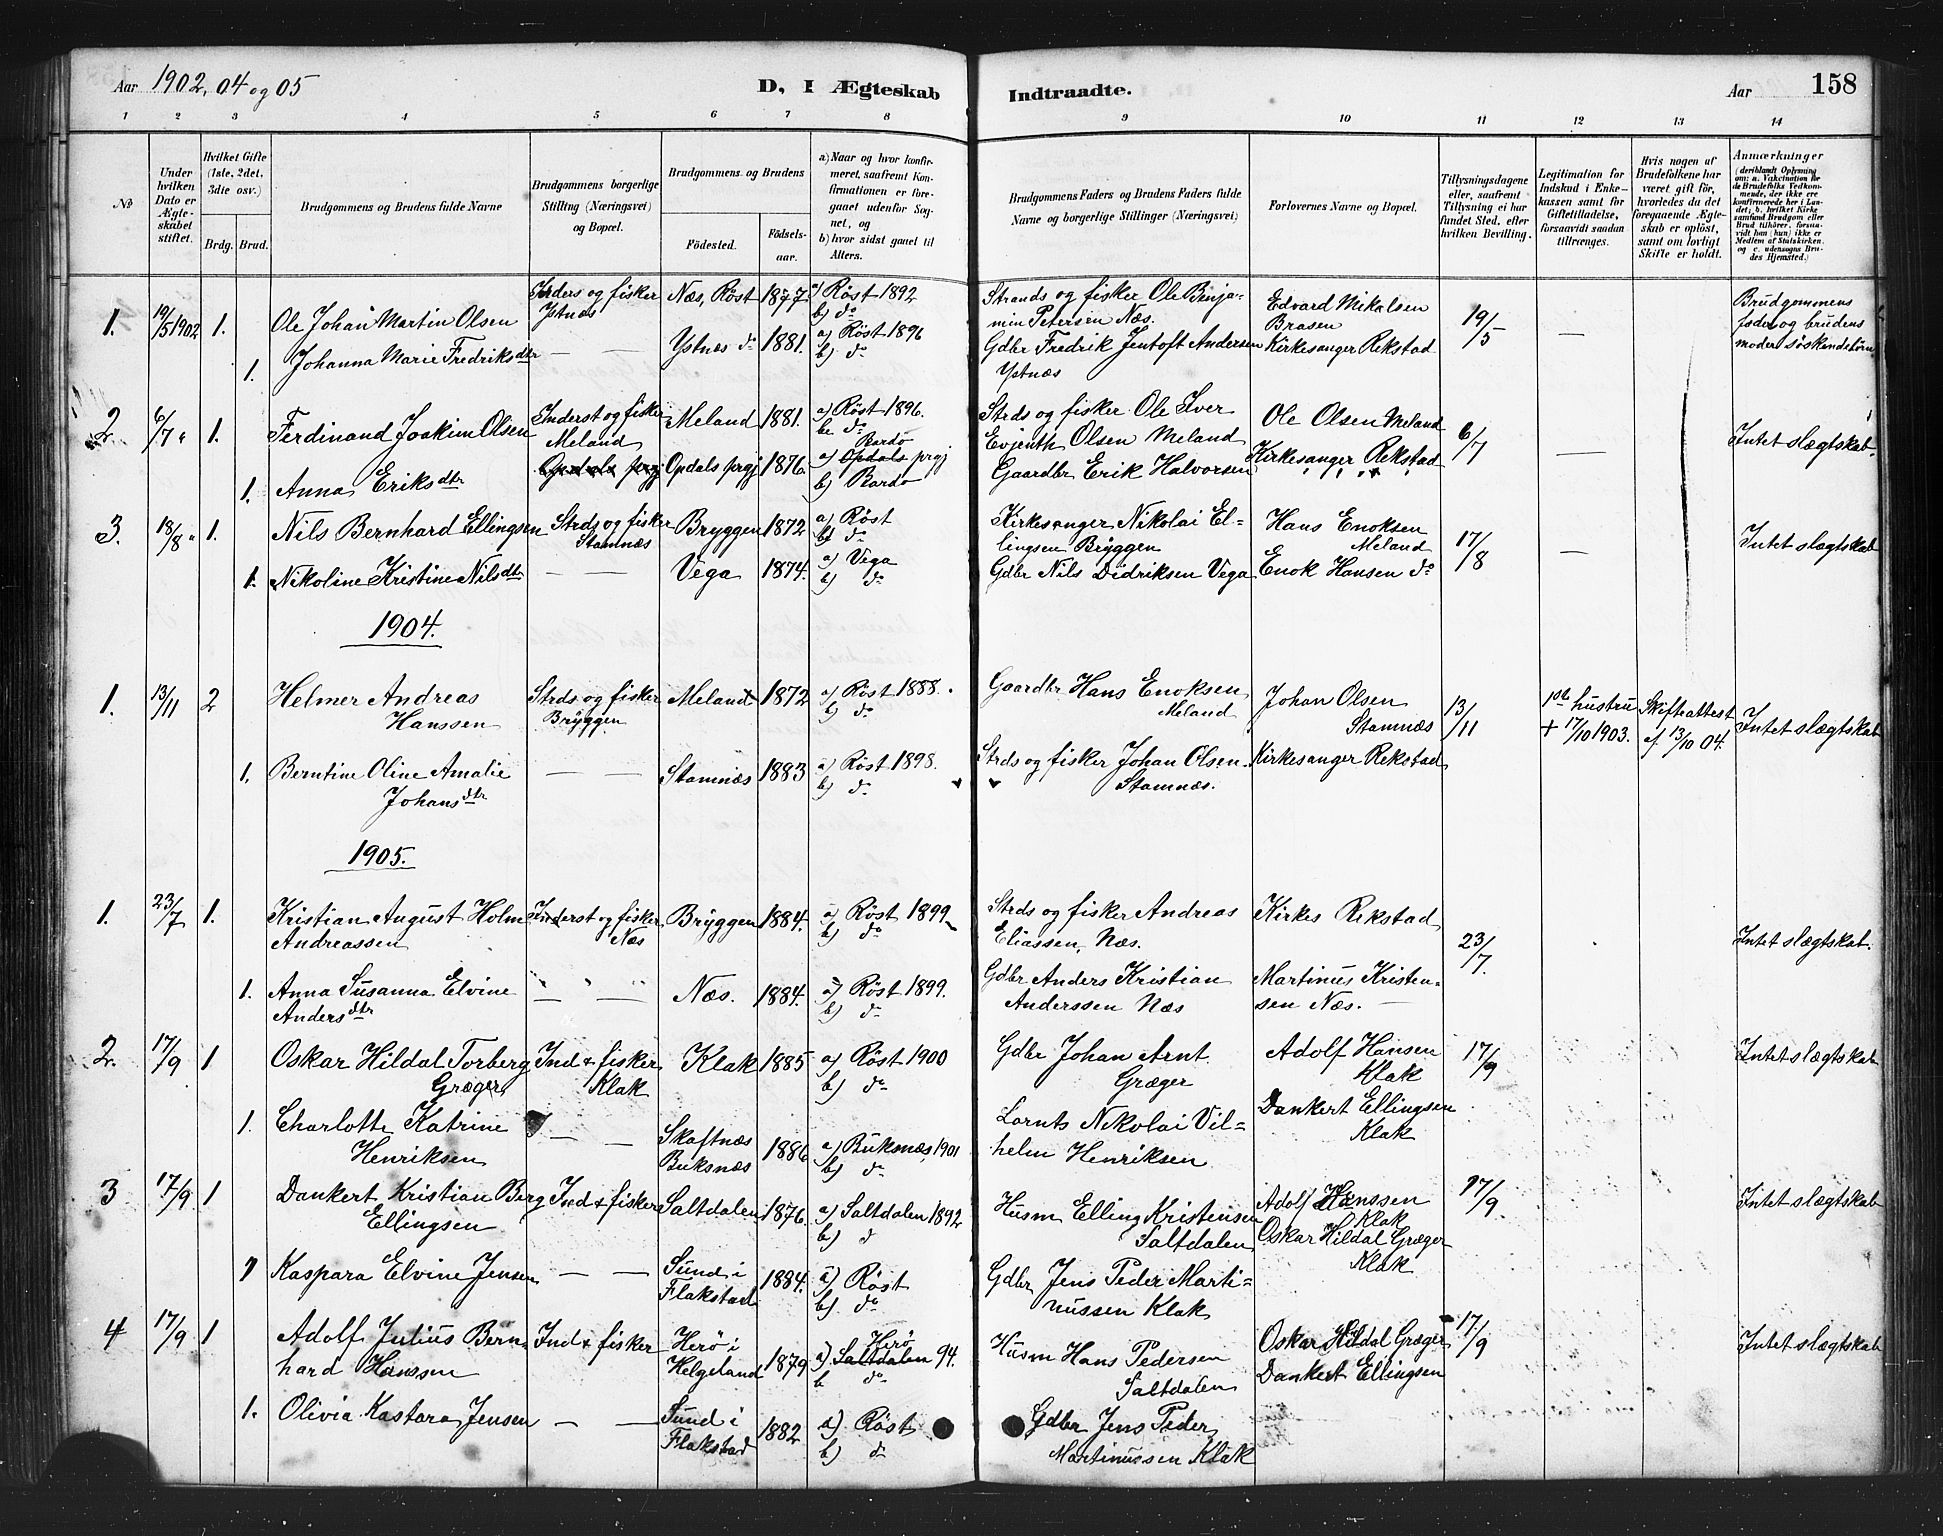 Aar 1902, 04 og 05
D, I Ægteskab Indtraadte.
Aar 158
1 2 3 4 5 6 7 8 9 10 11 12 13 14
No
Under hvilken Dato er Ægteskabet stiftet.
Hvilket Gifte (1ste, 2det, 3die osv.)
Brdg. Brud.
Brudgommens og Brudens fulde Navne
Brudgommens borgerlige Stilling (Næringsvei) og Bopæl.
Brudgommens og Brudens
Fødested.
Fødselsaar.
a) Naar og hvor konfirmeret, saafremt Konfirmationen er foregaaet udenfor Sognet, og
b) hvor sidst gaaet til Alters.
Brudgommens Faders og Brudens Faders fulde Navne og borgerlige Stillinger (Næringsvei)
Forlovernes Navne og Bopæl.
Tillysningsdagene eller, saafremt Tillysning ei har fundet Sted, efter hvilken Bevilling.
Legitimation for Indskud i Enkekassen samt for Giftetilladelse, forsaavidt saadan tiltrænges.
Hvis nogen af Brudefolkene har været gift før, hvorledes da det foregaaende Ægteskab er opløst, samt om lovligt Skifte er holdt.
Anmærkninger (deriblandt Oplysning om: a. Vakcination for de Brudefolks Vedkommende, der ikke ere konfirmerede her i Landet; b. hvilket Kirkesamfund Brudgom eller Brud tilhører, forsaavidt han (hun) ikke er Medlem af Statskirken. og c. udensogns Brudes Hjemsted.)
1. 19/5 1902 1. Ole Johan Martin Olsen
Inders og fisker Ystnæs
Næs, Røst 1877. a) Røst 1892 b) do
Strands og fisker Ole Benjamin Petersen Næs.
Edvard Mikalsen Brasen
19/5 —
Brudgommens fader og brudens moder søskendebørn
1. Johanna Marie Fredriksdtr — —
Ystnæs do 1881. a) Røst 1896 b) do
Gdbr Fredrik Jentoft Andersen Ystnæs
Kirkesanger Rekstad
2. 6/7 " 1. Ferdinand Joakim Olsen
Inderst og fisker Meland
Meland 1881. a) Røst 1896. b) do
Strds og fisker Ole Iver Evjenth Olsen Meland
Ole Olsen Meland
6/7 —
Intet slægtskab.
1. Anna Eriksdtr
Opdals prgj Opdals prgj 1876. a) Opdals prgj Bardo b) Bardo
Gaardbr Erik Halvorsen
Kirkesanger Rekstad
3. 18/8 " 1. Nils Bernhard Ellingsen
Strds og fisker Stamnæs
Bryggen 1872 a) Røst b) do
Kirkesanger Nikolai Ellingsen Bryggen
Hans Enoksen Meland
17/8 —
Intet slægtskab
1. Nikoline Kristine Nilsdtr — —
Vega 1874. a) Vega b) do
Gdbr Nils Didriksen Vega
Enok Hansen do
1904.
1. 13/11 2 Helmer Andreas Hanssen
Strds og fisker Bryggen
Meland 1872 a) Røst 1888. b) do
Gaardbr Hans Enoksen Meland
Johan Olsen Stamnæs
13/11
1ste hustru + 17/10 1903.
Skifteattest af 13/10 04.
Intet slægtskab
1. Berntine Oline Amalie Johansdtr — —
Stamnæs 1883 a) Røst 1898. b) do
Strds og fisker Johan Olsen Stamnæs.
Kirkesanger Rekstad
1905.
1. 23/7 1. Kristian August Holm Andreassen
Inderst og fisker Næs
Bryggen 1884. a) Røst 1899 b) do
Strds og fisker Andreas Eliassen, Næs.
Kirkes Rekstad
23/7.
Intet slægtskab.
1. Anna Susanna Elvine Andersdtr — " — "
Næs. 1884. a) Røst 1899. b) do
Gdbr Anders Kristian Anderssen Næs
Martinus Kristensen Næs. —
2. 17/9 1 Oskar Hildal Torberg Græger
Ind & fisker Klak
Klak 1885 a) Røst 1900 b) do
Gdbr Johan Arnt Græger
Adolf Hansen Klak
17/9
Intet slægtskab
1. Charlotte Katrine Henriksen — —
Skaftnæs Buksnæs 1886 a) Buksnæs, 1901 b) do
Lornts Nikolai Vilhelm Henriksen
Dankert Ellingsen Klak
3 17/9 1 Dankert Kristian Berg Ellingsen
Ind & fisker
Saltdalen 1876. a) Saltdalen 1892 b) d
Husm Elling Kristensen Saltdalen
Adolf Hanssen Klak
17/9
Intet slægtskab
1 Kaspara Elvine Jensen — —
Sund i Flakstad 1884. a) Røst b) do
Gdbr Jens Peder Martinussen Klak
Oskar Hildal Græger Klak
4 17/9 1 Adolf Julius Bernhard Hanssen
Ind & fisker
Herø i Helgeland 1879 a) Saltdalen Herø 94. b do
Husm Hans Pedersen Saltdalen
Oskar Hildal Græger
17/9
Intet slægtskab
1. Olivia Kastara Jensen — —
Sund i Flakstad 1882 a) Røst b) do
Gdbr Jens Peder Martinussen Klak
Dankert Ellingsen